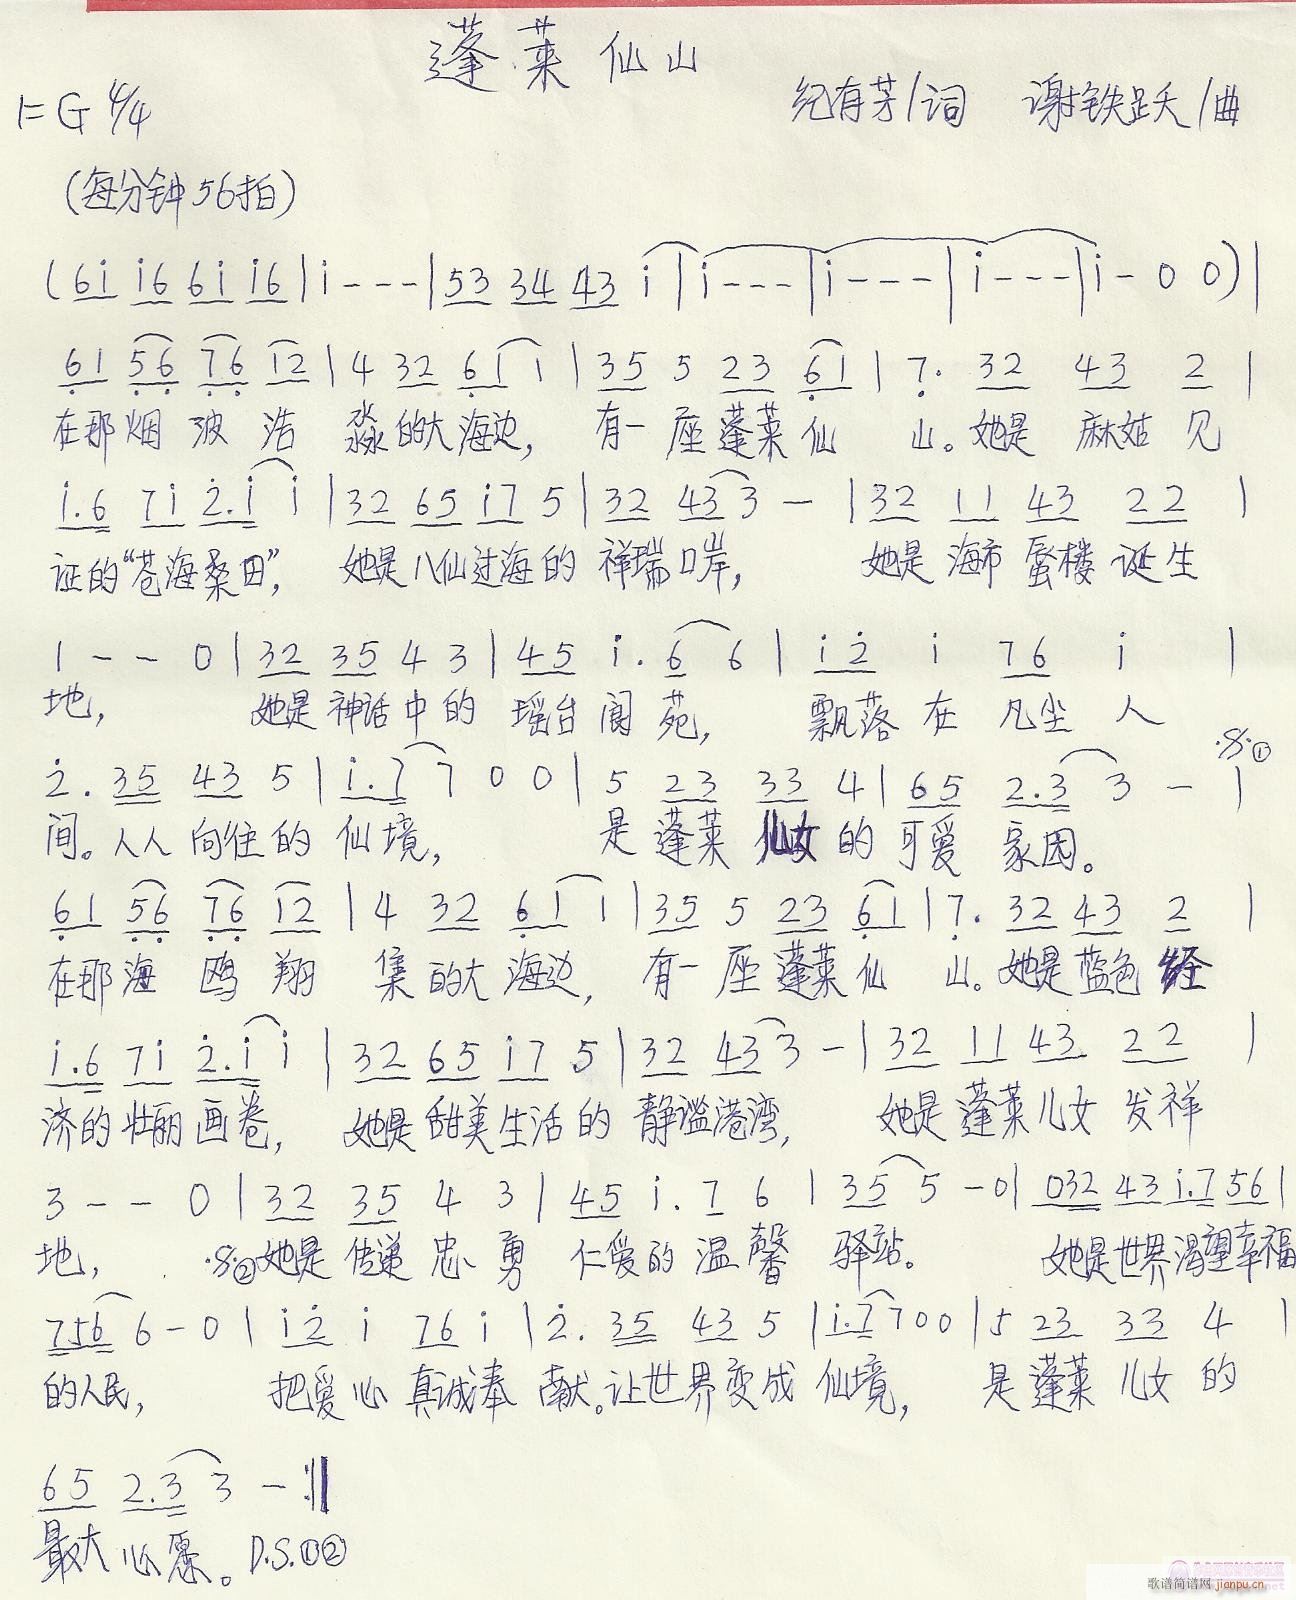 蓬莱仙山
1=G 4/4 纪有芳/词 谢铁跃/曲
(每分钟56拍)
(6i i6 6i i6 | i - - - | 53 34 43 i | i - - - | i - - - | i - - - | i - 0 0) |
61 56 76 12 | 4 32 61 1 | 35 5 23 61 | 7. 32 43 2 |
在那烟波浩淼的大海边, 有一座蓬莱仙山。她是麻姑见
i.6 7i 2.i i | 32 65 i7 5 | 32 43 3 - | 32 11 43 22 |
证的“苍海桑田”, 她是八仙过海的祥瑞口岸, 她是海市蜃楼诞生
1 - - 0 | 32 35 4 3 | 45 i. 6 6 | i2 i 76 i |
地, 她是神话中的瑶台阆苑, 飘落在凡尘人
2. 35 43 5 | i.7 7 0 0 | 5 23 33 4 | 65 2.3 3 - | ·S·①
间。人人向往的仙境, 是蓬莱儿女的可爱家园。
61 56 76 12 | 4 32 61 1 | 35 5 23 61 | 7. 32 43 2 |
在那海鸥翔集的大海边, 有一座蓬莱仙山。她是蓝色经
i.6 7i 2.i i | 32 65 i7 5 | 32 43 3 - | 32 11 43 22 |
济的壮丽画卷, 她是甜美生活的静谧港湾, 她是蓬莱儿女发祥
3 - - 0 | 32 35 4 3 | 45 i. 7 6 | 35 5 - 0 | 032 43 i.7 56 |
地, ·S·②她是传递忠勇仁爱的温馨驿站。 她是世界渴望幸福
756 6 - 0 | i2 i 76 i | 2. 35 43 5 | i.7 7 0 0 | 5 23 33 4 |
的人民, 把爱心真诚奉献。让世界变成仙境, 是蓬莱儿女的
65 2.3 3 - :||
最大心愿。D.S.①②
歌谱简谱网 jianpu.cn